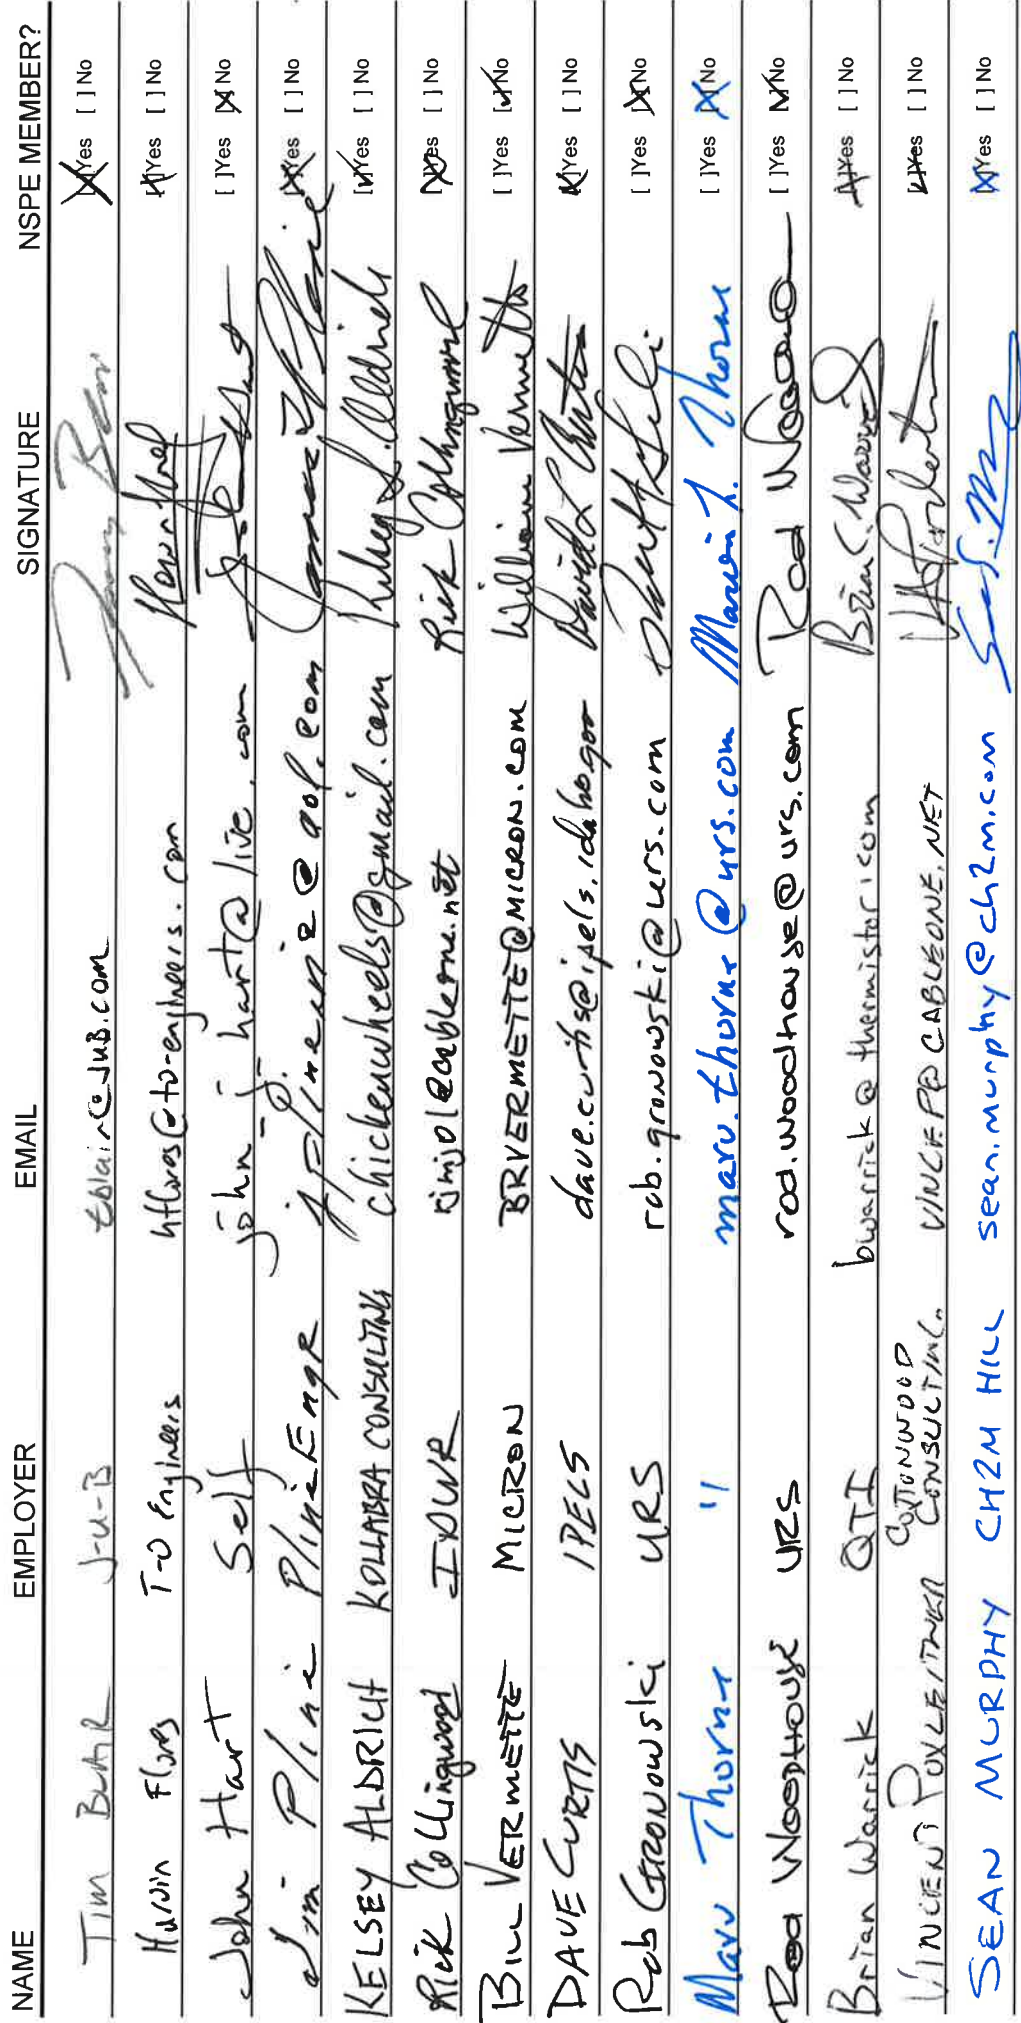 NAME EMPLOYER EMAIL SIGNATURE NSPE MEMBER?
Tim BLAIR J-U-B tblair@JUB.com [X]Yes [ ] No
Hurvin Flores T-O Engineers hflores@to-engineers.com [X]Yes [ ] No
John Hart Self john_j_hart@live.com [ ]Yes [X] No
Jim Pline Pline Engr jplineeng@aol.com [X]Yes [ ] No
KELSEY ALDRICH KOLLABRA CONSULTING chickenwheels@gmail.com Kelsey A. Aldrich [✓]Yes [ ] No
Rick Collingwood IDWR rjnjol@cableone.net Rick Collingwood [X]Yes [ ] No
BILL VERMETTE MICRON BRVERMETTE@MICRON.COM William Vermette [ ]Yes [✓] No
DAVE CURTIS IPELS dave.curtis@ipels.idaho.gov David L Curtis [X]Yes [ ] No
Rob Gronowski URS rob.gronowski@urs.com [ ]Yes [X] No
Marv Thorne " marv.thorne@urs.com Marvin L. Thorne [ ]Yes [X] No
Rod Woodhouse URS rod.woodhouse@urs.com [ ]Yes [✓] No
Brian Warrick QTI bwarrick@thermistor.com Brian C. Warrick [X]Yes [ ] No
VINCENT COTTONWOOD CONSULTING VINCEP@CABLEONE.NET [X]Yes [ ] No
SEAN MURPHY CH2M HILL sean.murphy@ch2m.com [X]Yes [ ] No